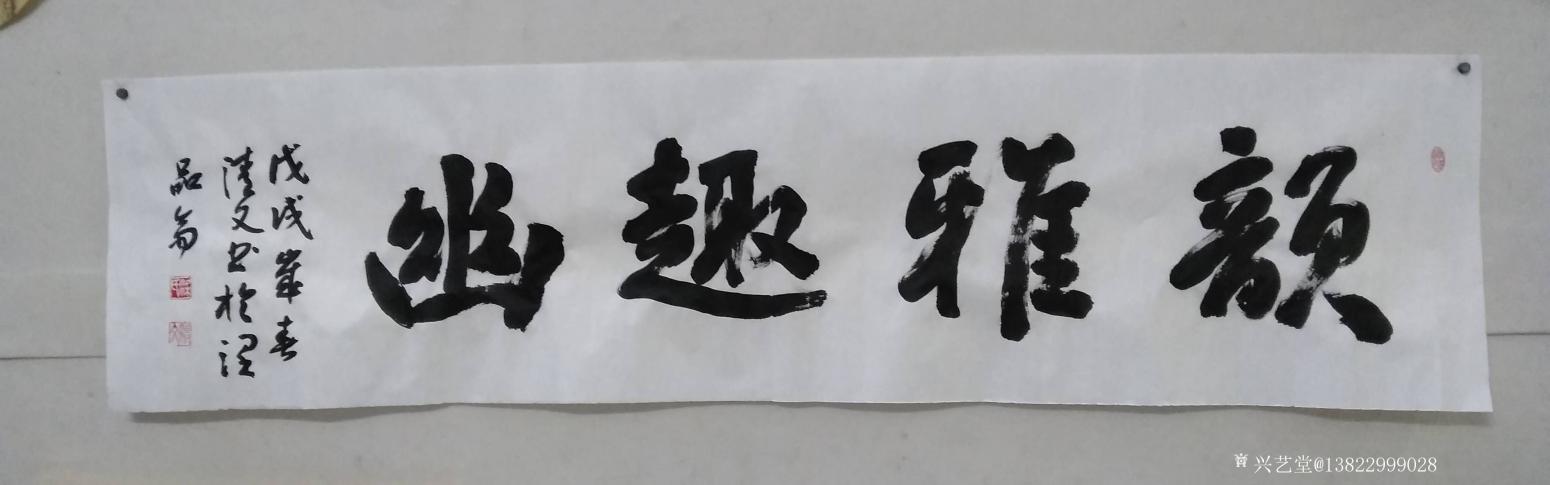 韻雅趣幽
戊戌歲春
清文书於潤
品斋
兴艺堂@13822999028